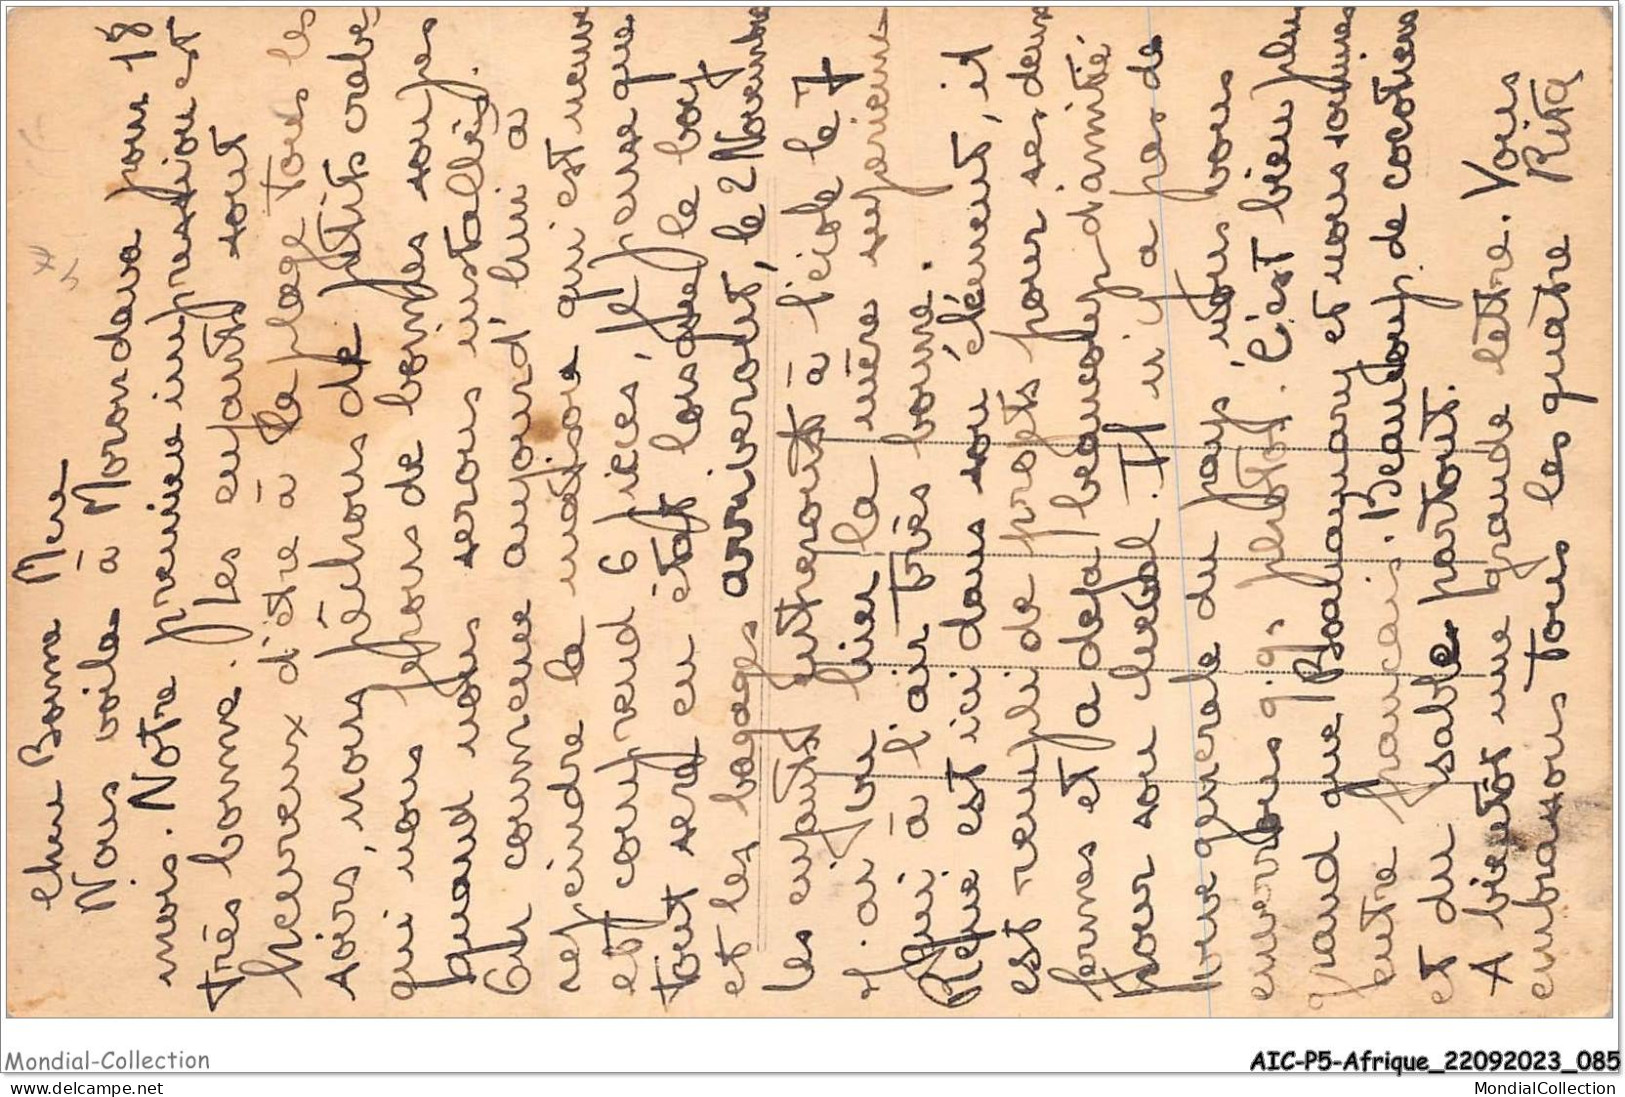 Chère Bonne Mère
Nous voilà à Morondava pour 18
mois. Notre première impression est
très bonne. Les enfants sont
heureux d'être à la plage tous les
soirs, nous pêchons de petits crabes
qui nous font de bonnes soupes
quand nous serons installés.
On commence aujourd'hui à
repeindre la maison qui est neuve
et comprend 6 pièces, je pense que
tout sera en état lorsque le boy
et les bagages arriveront, le 2 Novembre
les enfants entreront à l'école le 7
j'ai vu hier la mère supérieure
qui à l'air très bonne.
est ici dans son élément, il
est rempli de projets pour ses deux
fermes et a déjà beaucoup d'amitié
pour son cheval. Il n'y a pas de
vue générale du pays, nous vous
enverrons q.q. photos. C'est bien plus
grand que et nous sommes
entre français. Beaucoup de cocotiers
et du sable partout.
A bientôt une grande lettre. Nous
embrassons tous les quatre Rita
Mondial-Collection
AIC-P5-Afrique_22092023_085
MondialCollection